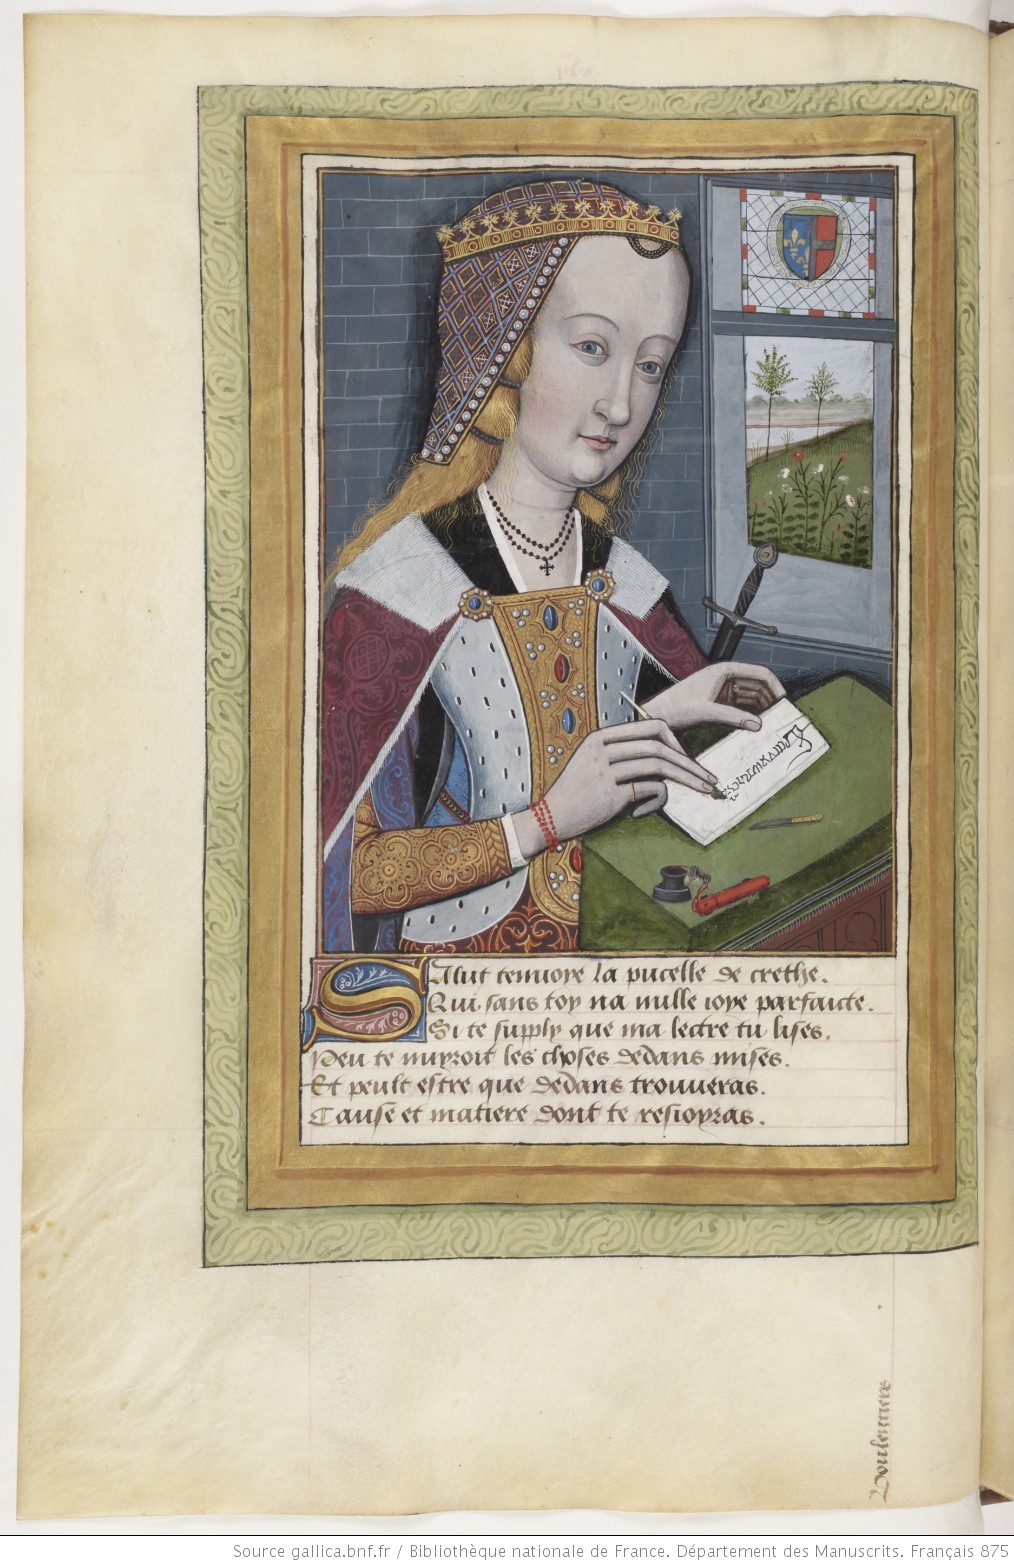 Salut tenuoye la pucelle de crethe.
Qui sans toy na nulle ioye parfaicte.
Si te supply que ma lectre tu lises.
Peu te nuyroit les choses dedans mises.
Et peult estre que dedans trouueras.
Cause et matiere dont te resioyras.
Voulentiers
Source gallica.bnf.fr / Bibliothèque nationale de France. Département des Manuscrits. Français 875